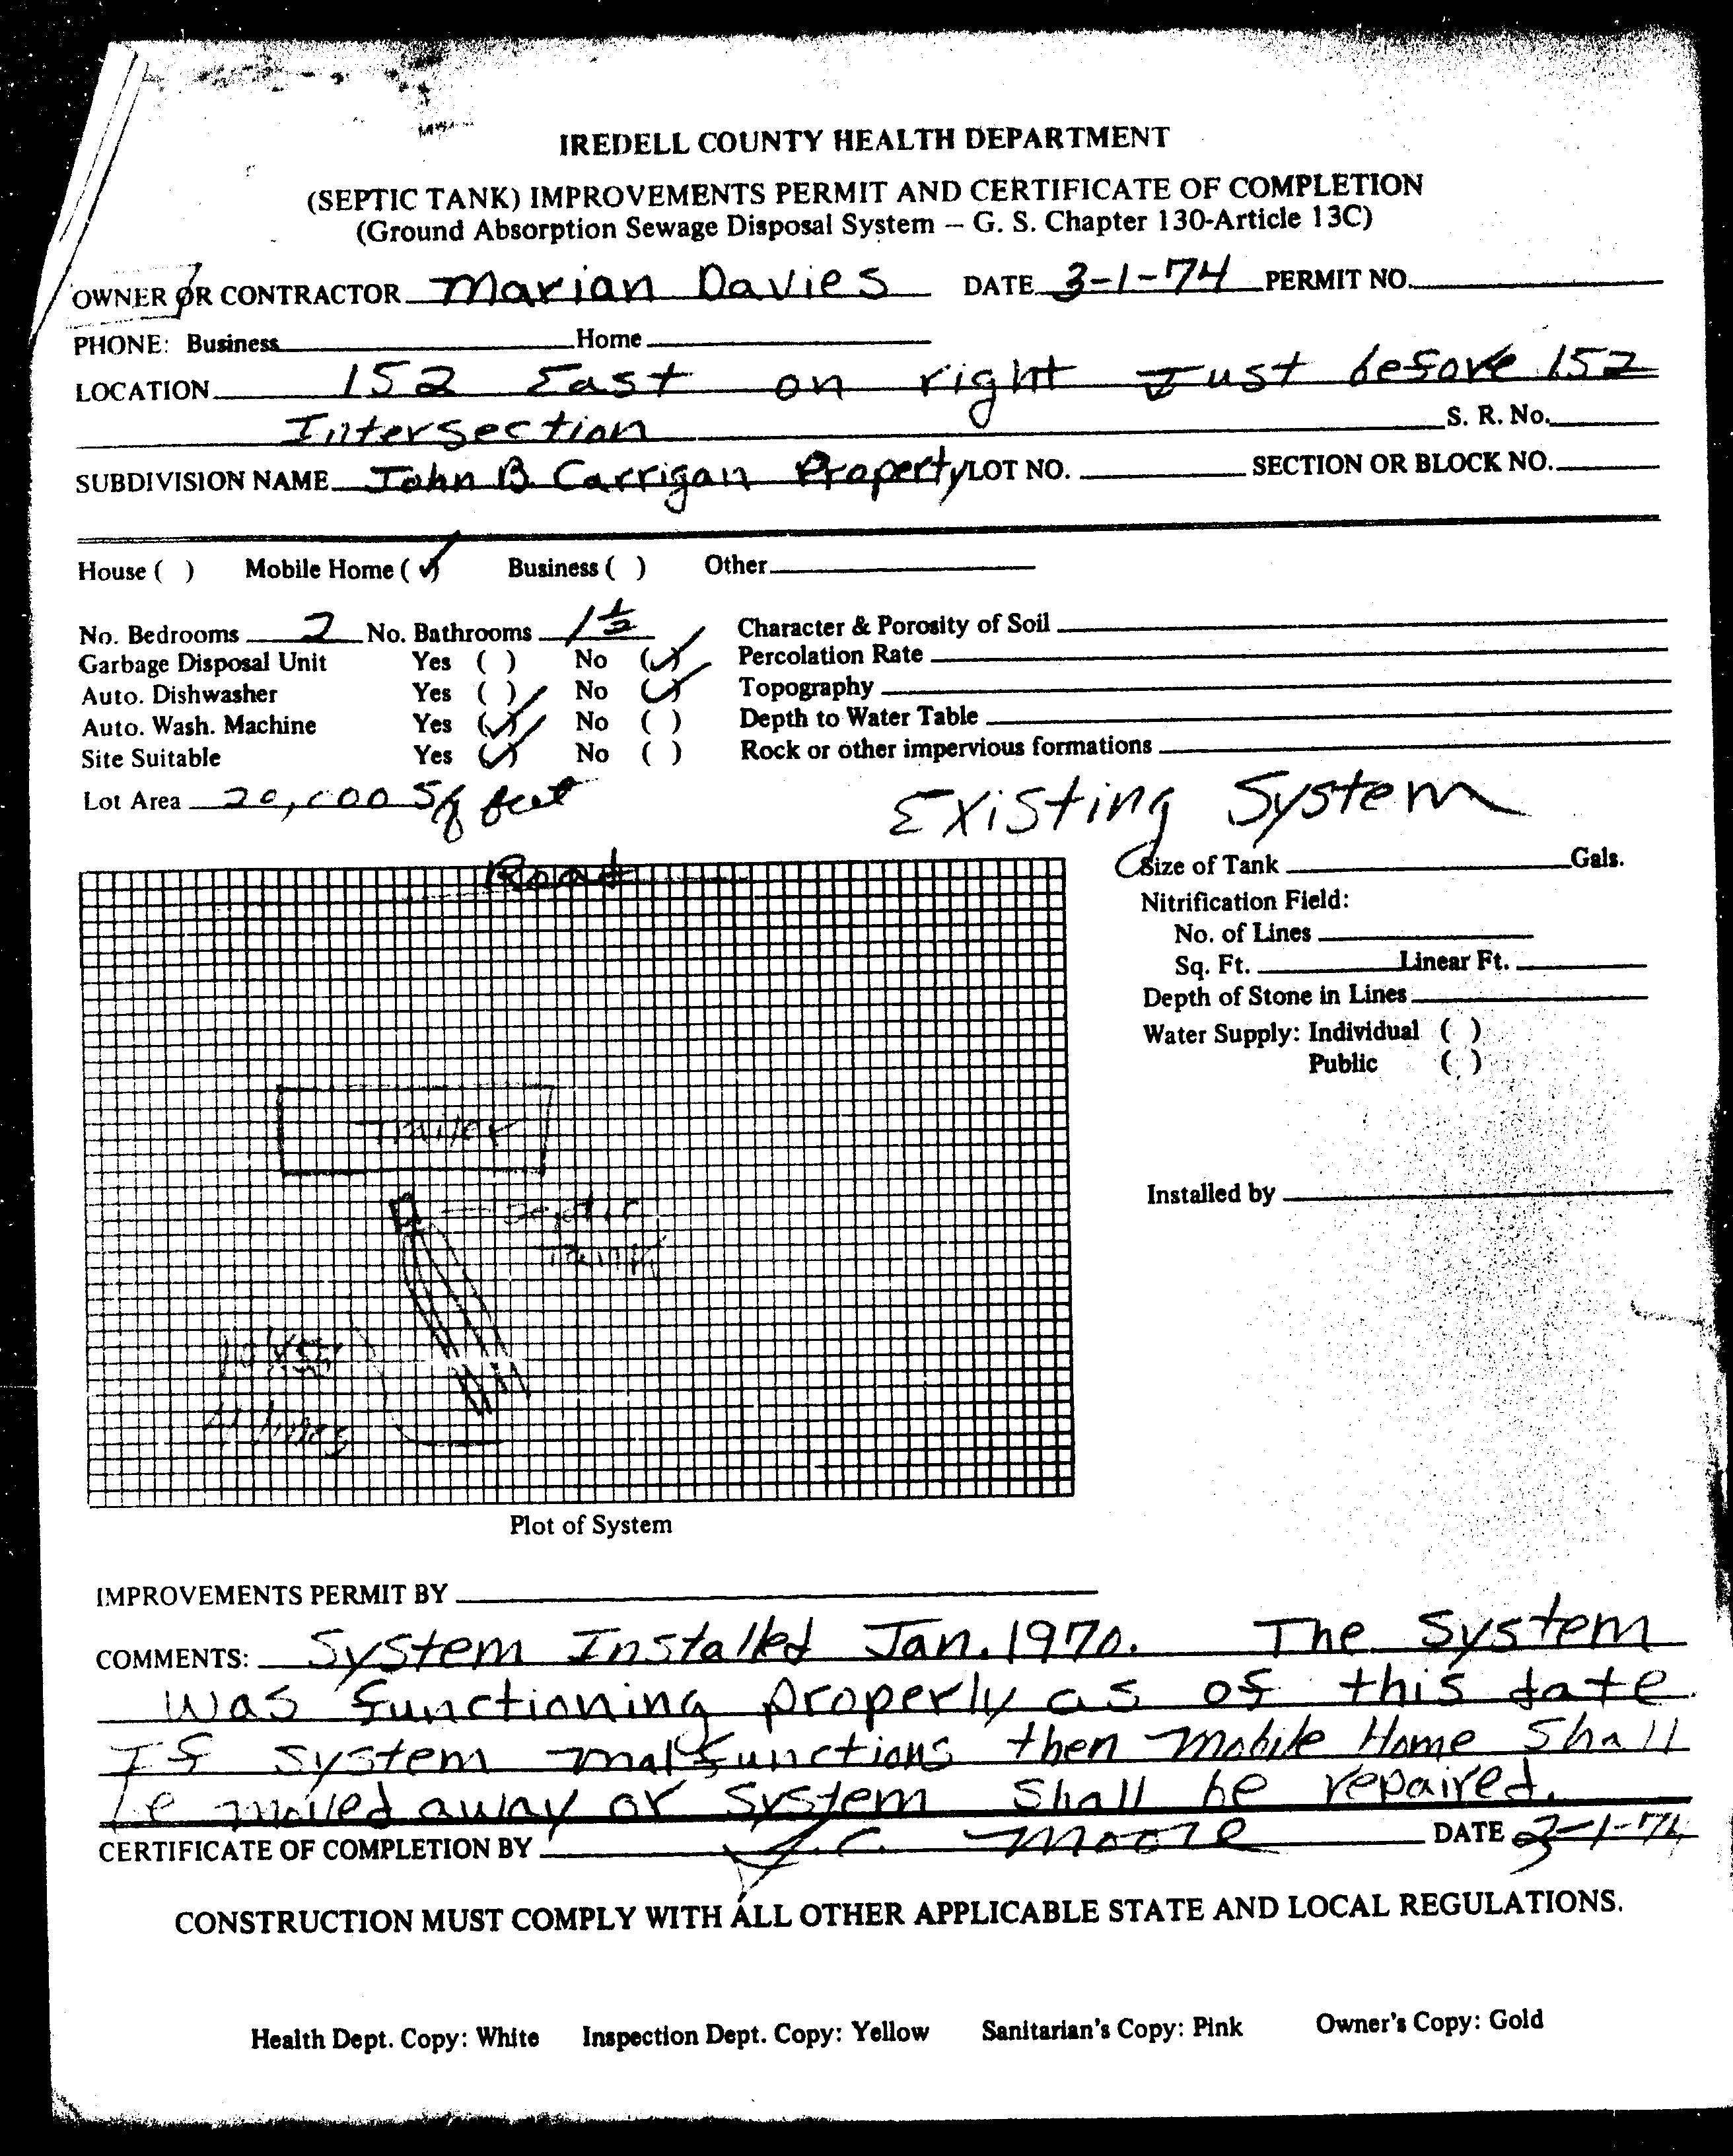 IREDELL COUNTY HEALTH DEPARTMENT
(SEPTIC TANK) IMPROVEMENTS PERMIT AND CERTIFICATE OF COMPLETION
(Ground Absorption Sewage Disposal System – G. S. Chapter 130-Article 13C)
OWNER OR CONTRACTOR Marian Davies DATE 3-1-74 PERMIT NO.
PHONE: Business Home
LOCATION 152 East on right Just before 152
Intersection S. R. No.
SUBDIVISION NAME John B. Carrigan Property LOT NO. SECTION OR BLOCK NO.
House ( ) Mobile Home (✓) Business ( ) Other
No. Bedrooms 2 No. Bathrooms 1 1/2 Character & Porosity of Soil
Garbage Disposal Unit Yes ( ) No (✓) Percolation Rate
Auto. Dishwasher Yes ( ) No (✓) Topography
Auto. Wash. Machine Yes (✓) No ( ) Depth to Water Table
Site Suitable Yes (✓) No ( ) Rock or other impervious formations
Lot Area 20,000 Sq feet Existing System
Road
Size of Tank Gals.
Nitrification Field:
No. of Lines
Sq. Ft. Linear Ft.
Depth of Stone in Lines
Water Supply: Individual ( )
Public ( )
Trailer
Installed by
Septic
Tank
lines
Plot of System
IMPROVEMENTS PERMIT BY
COMMENTS: System Installed Jan. 1970. The System
was functioning properly as of this date
If system malfunctions then Mobile Home Shall
be moved away or system shall be repaired.
CERTIFICATE OF COMPLETION BY J.C. Moore DATE 3-1-74
CONSTRUCTION MUST COMPLY WITH ALL OTHER APPLICABLE STATE AND LOCAL REGULATIONS.
Health Dept. Copy: White Inspection Dept. Copy: Yellow Sanitarian's Copy: Pink Owner's Copy: Gold